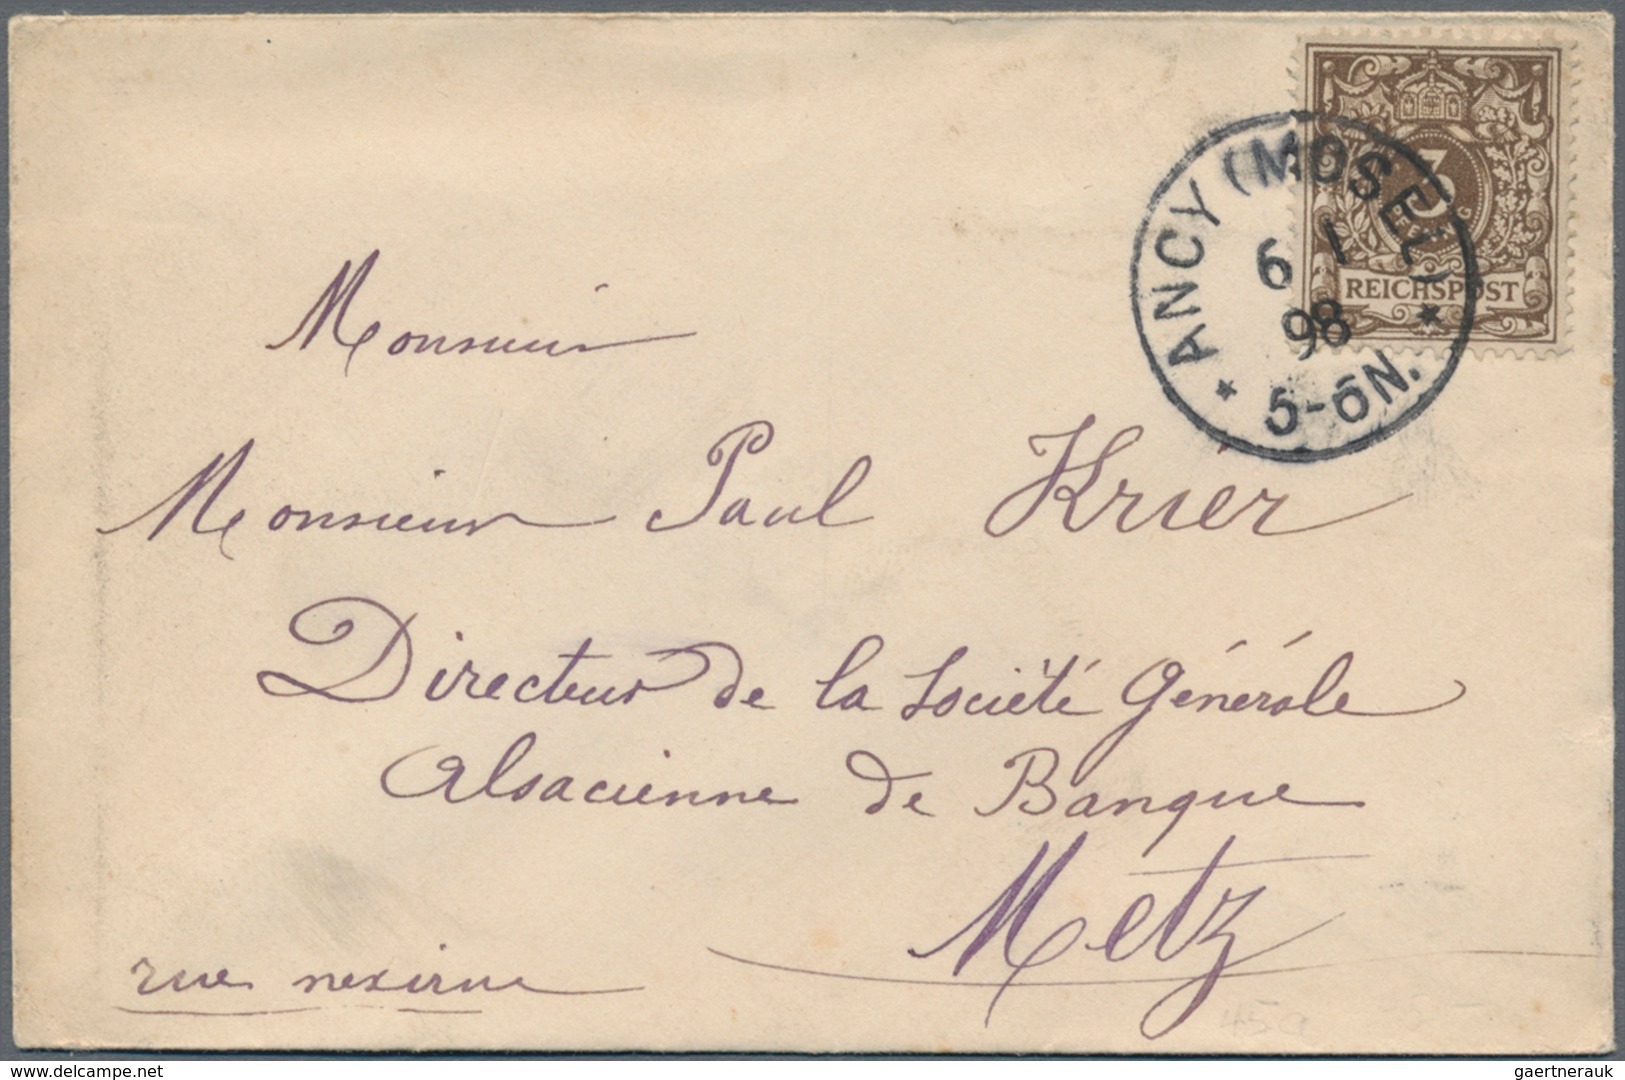 3
REICHSPOST
ANCY (MOSEL)
6 1
98
5-6N.
Monsieur
Monsieur Paul Krier
Directeur de la Société Générale
Alsacienne de Banque
Metz
rue nexirue
delcampe.net
gaertnerauk